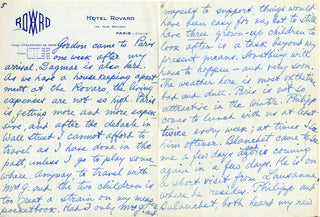 5
HOTEL ROVARO
44 RUE BRUNEL
PARIS
Gordon came to Paris
one week after my
arrival. Dagmar is also here.
As we have a housekeeping apart-
ment at the Rovaro, the living
expenses are not so high. Paris
is getting more and more expen-
sive and after the debacle in
Wall Street I cannot afford to
travel as I have done in the
past, unless I go to play some
where. Anyway to travel with
Mrs G. and the two children is
too great a strain on my
pocketbook. Had I only Mrs G. and
6
myself to support things would
have been easy for me, but to
have three grown-up children to
look after is a task beyond my
present means. Something
to happen and
The weather here is most of the time
and chill. Paris is not so
attractive in the winter. Philipp
comes to lunch with us at least
twice every week; at times
even oftener. Blanchet came to see
me a few days ago
again in a few days. He is on
a short visit from Lausanne,
where he resides. Philipp and
Blanchet both heard my new